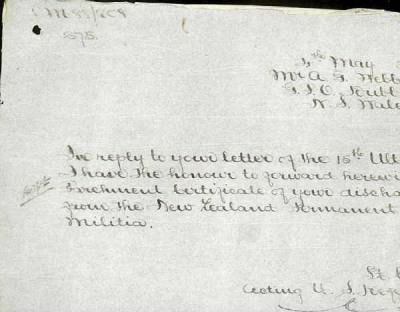 M 88/
875.
5th May
Mr A. G. Webb
G. P. O.
N. S. Wale
In reply to your letter of the 15th Ult
I have the honour to forward herewi
Parchment Certificate of your discha
from the New Zealand Permanent
Militia.
Acting U. S.